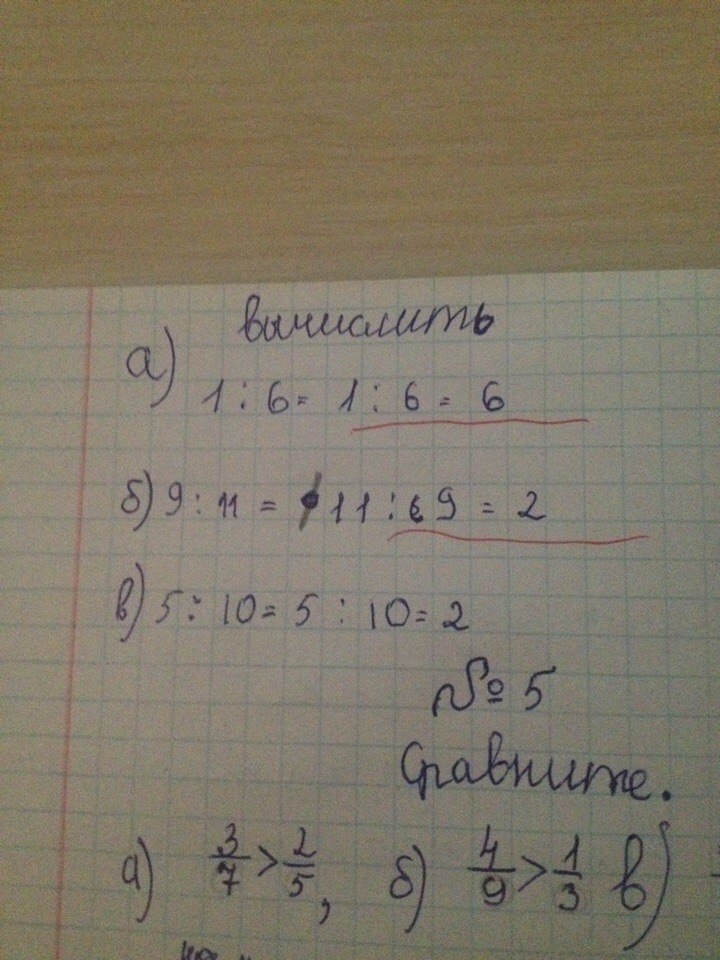 вычислить
а) 1 : 6 = 1 : 6 = 6
б) 9 : 11 = 11 : 9 = 2
в) 5 : 10 = 5 : 10 = 2
№ 5
Сравните.
а) 3/7 > 2/5, б) 4/9 > 1/3 в)